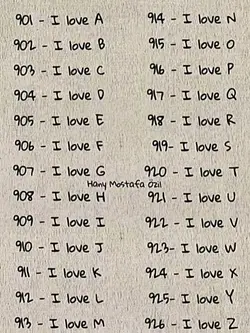 901 - I love A
902 - I love B
903 - I love C
904 - I love D
905 - I love E
906 - I love F
907 - I love G
908 - I love H
909 - I love I
910 - I love J
911 - I love K
912 - I love L
913 - I love M
Hany Mostafa Özil
914 - I love N
915 - I love O
916 - I love P
917 - I love Q
918 - I love R
919 - I love S
920 - I love T
921 - I love U
922 - I love V
923 - I love W
924 - I love X
925 - I love Y
926 - I love Z